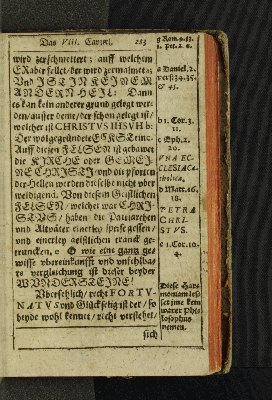 Das VIII. Capitel. 283
wird zerschmettert; auff welchem
ER aber fellet/ der wird zermalmet:
Und IST IN KEINEM
ANDERN HEIL: Dann
es kan kein anderer grund gelegt wer-
den/ ausser deme/ der schon gelegt ist/
welcher ist CHRISTVS IHSVH b:
Der wolgegründete
Auff diesen FELSEN ist gebawet
die KIRCHE oder GEMEI-
NE CHRISTI/ und die pforten
der Hellen werden dieselbe nicht uber
weldigend. Von diesem Geistlichen
FELSEN/ welcher war CHRI-
STUS/ haben die Patriarchen
und Altväter einerley speise gessen/
und einerley geistlichen tranck ge-
truncken, c O wie eine gantz ge-
wisse ubereinkunfft und unfehlba-
re vergleichung ist dieser beyder
WUNDERSTEINE!
Ubersehlich/ recht FORTU-
NATVS und Glückselig ist der/ so
beyde wohl kennet/ recht verstehet/
sich
g Rom. 9. 33.
1. Pet. 2. 6.
a Daniel. 2.
vers 34. 35.
b 1. Cor. 3.
11.
c Eph. 2.
20.
VNA EC-
CLESIA
b Matt. 16.
18.
PETRA
CHRI-
STVS.
c 1. Cor. 10.
4.
Diese Har-
setzet
waren Phi-
losophus
nemen.